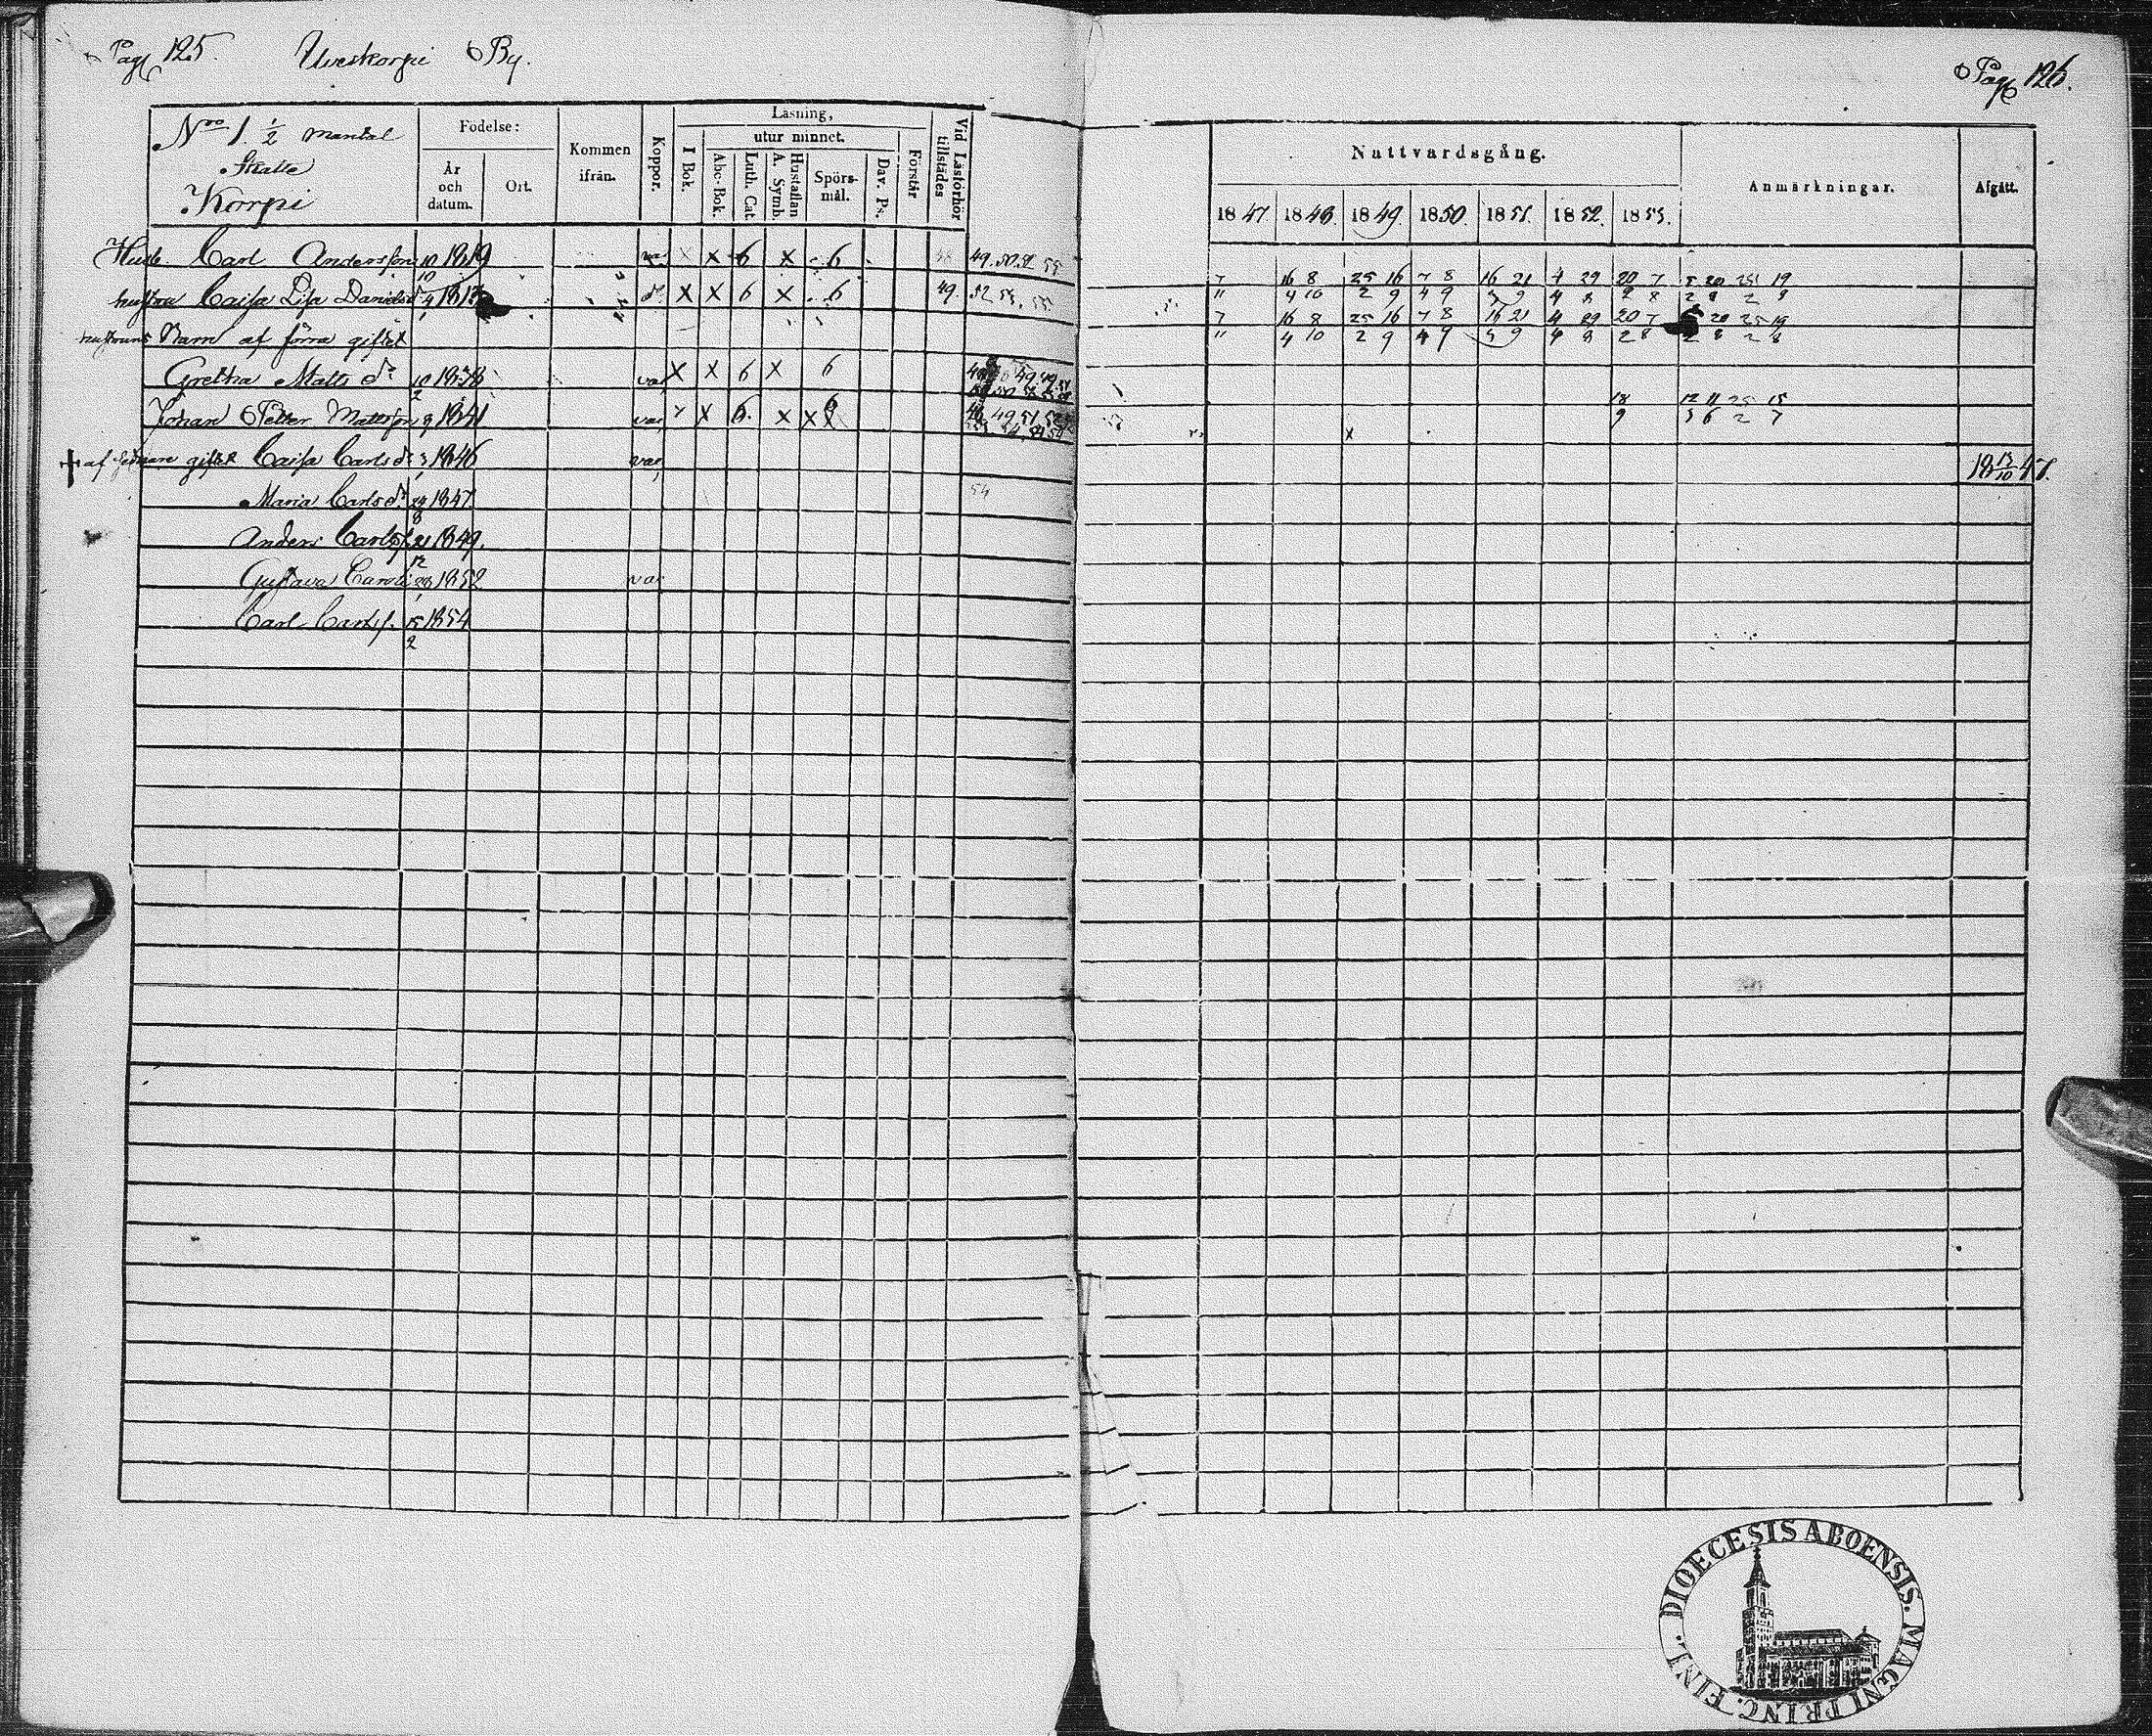 Pag 125. By.
Pag 126.
Noo 1. 1/2 mantal
Skatte
Korpi
Födelse:
År och datum.
Ort.
Kommen ifrån.
Koppor.
Läsning,
utur minnet.
I Bok.
Abc-Bok.
Luth. Cat.
Hustaflan A. Symb.
Spörsmål.
Dav. Ps.
Förstår
Vid Läsförhör tillstädes
Nattvardsgång.
1847. 1848. 1849. 1850. 1851. 1852. 1853.
Anmärkningar.
Afgått.
Carl Andersson 10/10 1819 x x 6 x 6 49. 50. 52 55
7 16 8 25 16 7 8 16 21 4 29 20 7 5 20 25 19
" 4 10 2 9 4 9 5 9 4 8 2 8 2 8 2 8
hustru Caisa Lisa Davidsdr x x 6 x 6 49. 52
7 16 8 25 16 7 8 16 21 4 29 20 7 20 25 19
" 4 10 2 9 4 9 5 9 4 8 2 8 2 8 2 8
hustruns Barn af förra giftet
Gretha Matts dr 10/2 1838 vac x x 6 x 6
18 12 11 25 15
Johan Petter Mattsson 9 1841 vac x x 6. x x 6
9 5 6 2 7
+ af sednare giftet Caisa Carls dr 3/1 1846 vac 18 13/10 47.
Maria Carls dr 29/8 1847. 54
Anders Carlss. 21/12 1849.
Gustava Carols 28/1 1852 vac
Carl Carlss. 15/2 1854
DIOECESIS ABOENSIS. MAGNI PRINC. FINL.